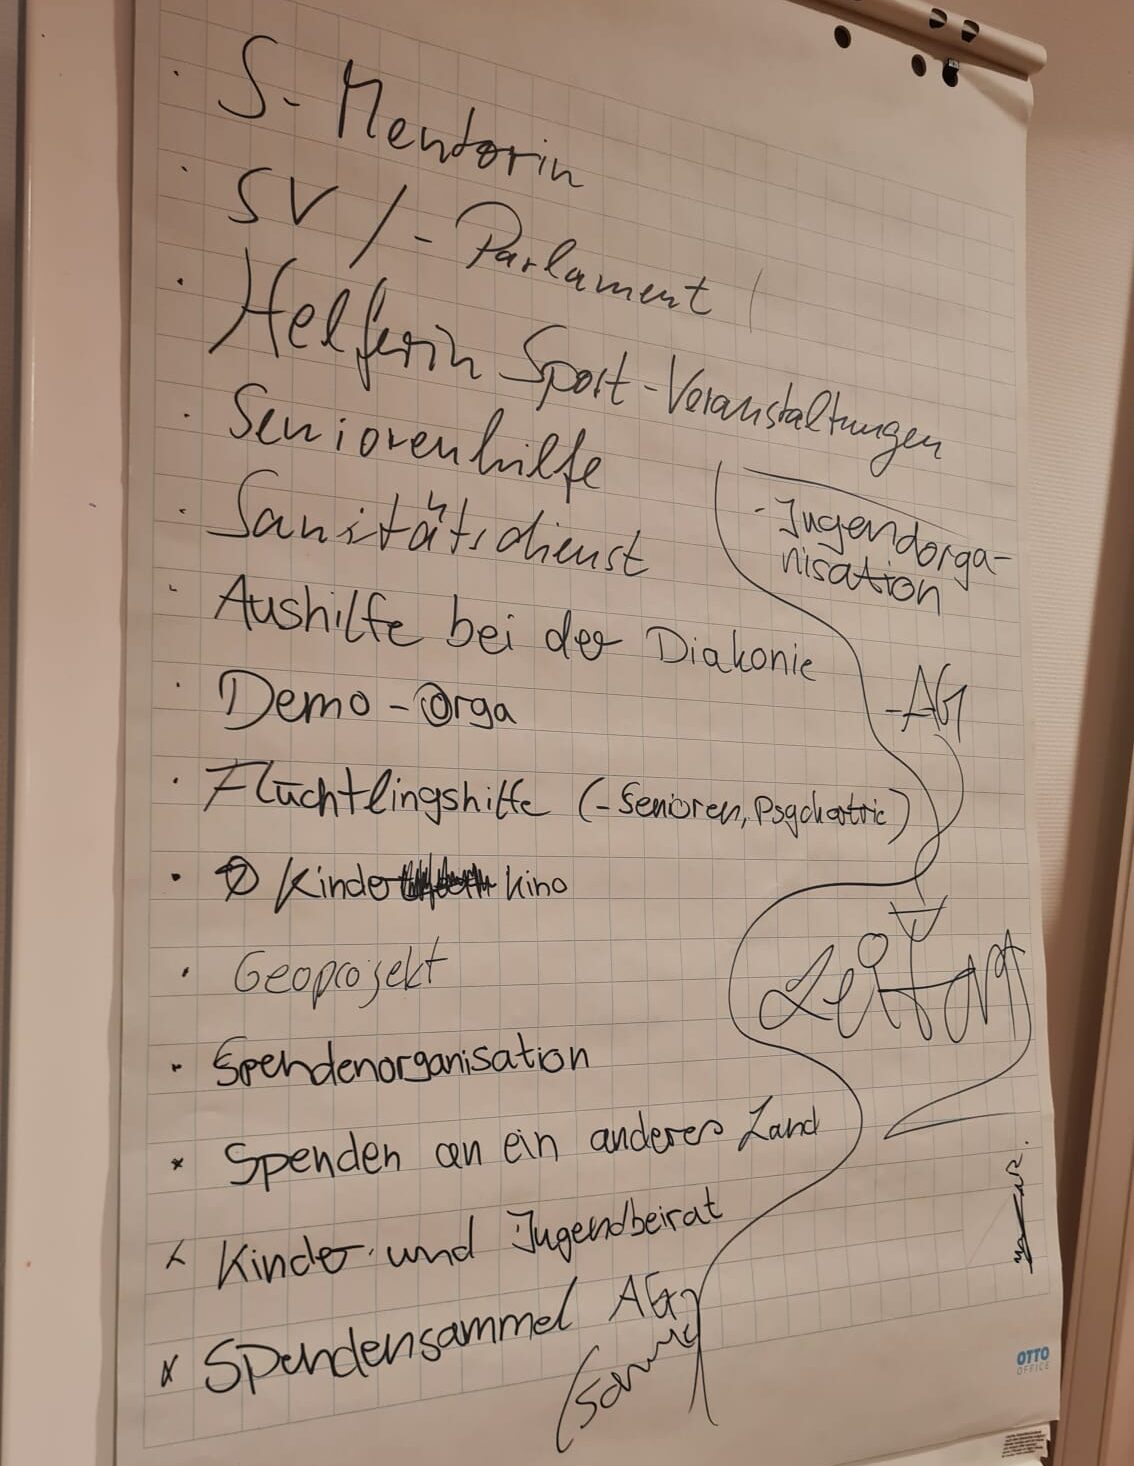 · S-Mentorin
· SV / - Parlament
· Helferin Sport-Veranstaltungen
· Seniorenhilfe
· Sanitätsdienst
· Aushilfe bei der Diakonie
· Demo-Orga
· Flüchtlingshilfe (-Senioren, Psychiatrie)
· Kinder kino
· Geoprojekt
· Spendenorganisation
× Spenden an ein anderes Land
× Kinder- und Jugendbeirat
× Spendensammel AG
- Jugendorga-
nisation
- AG
OTTO
OFFICE